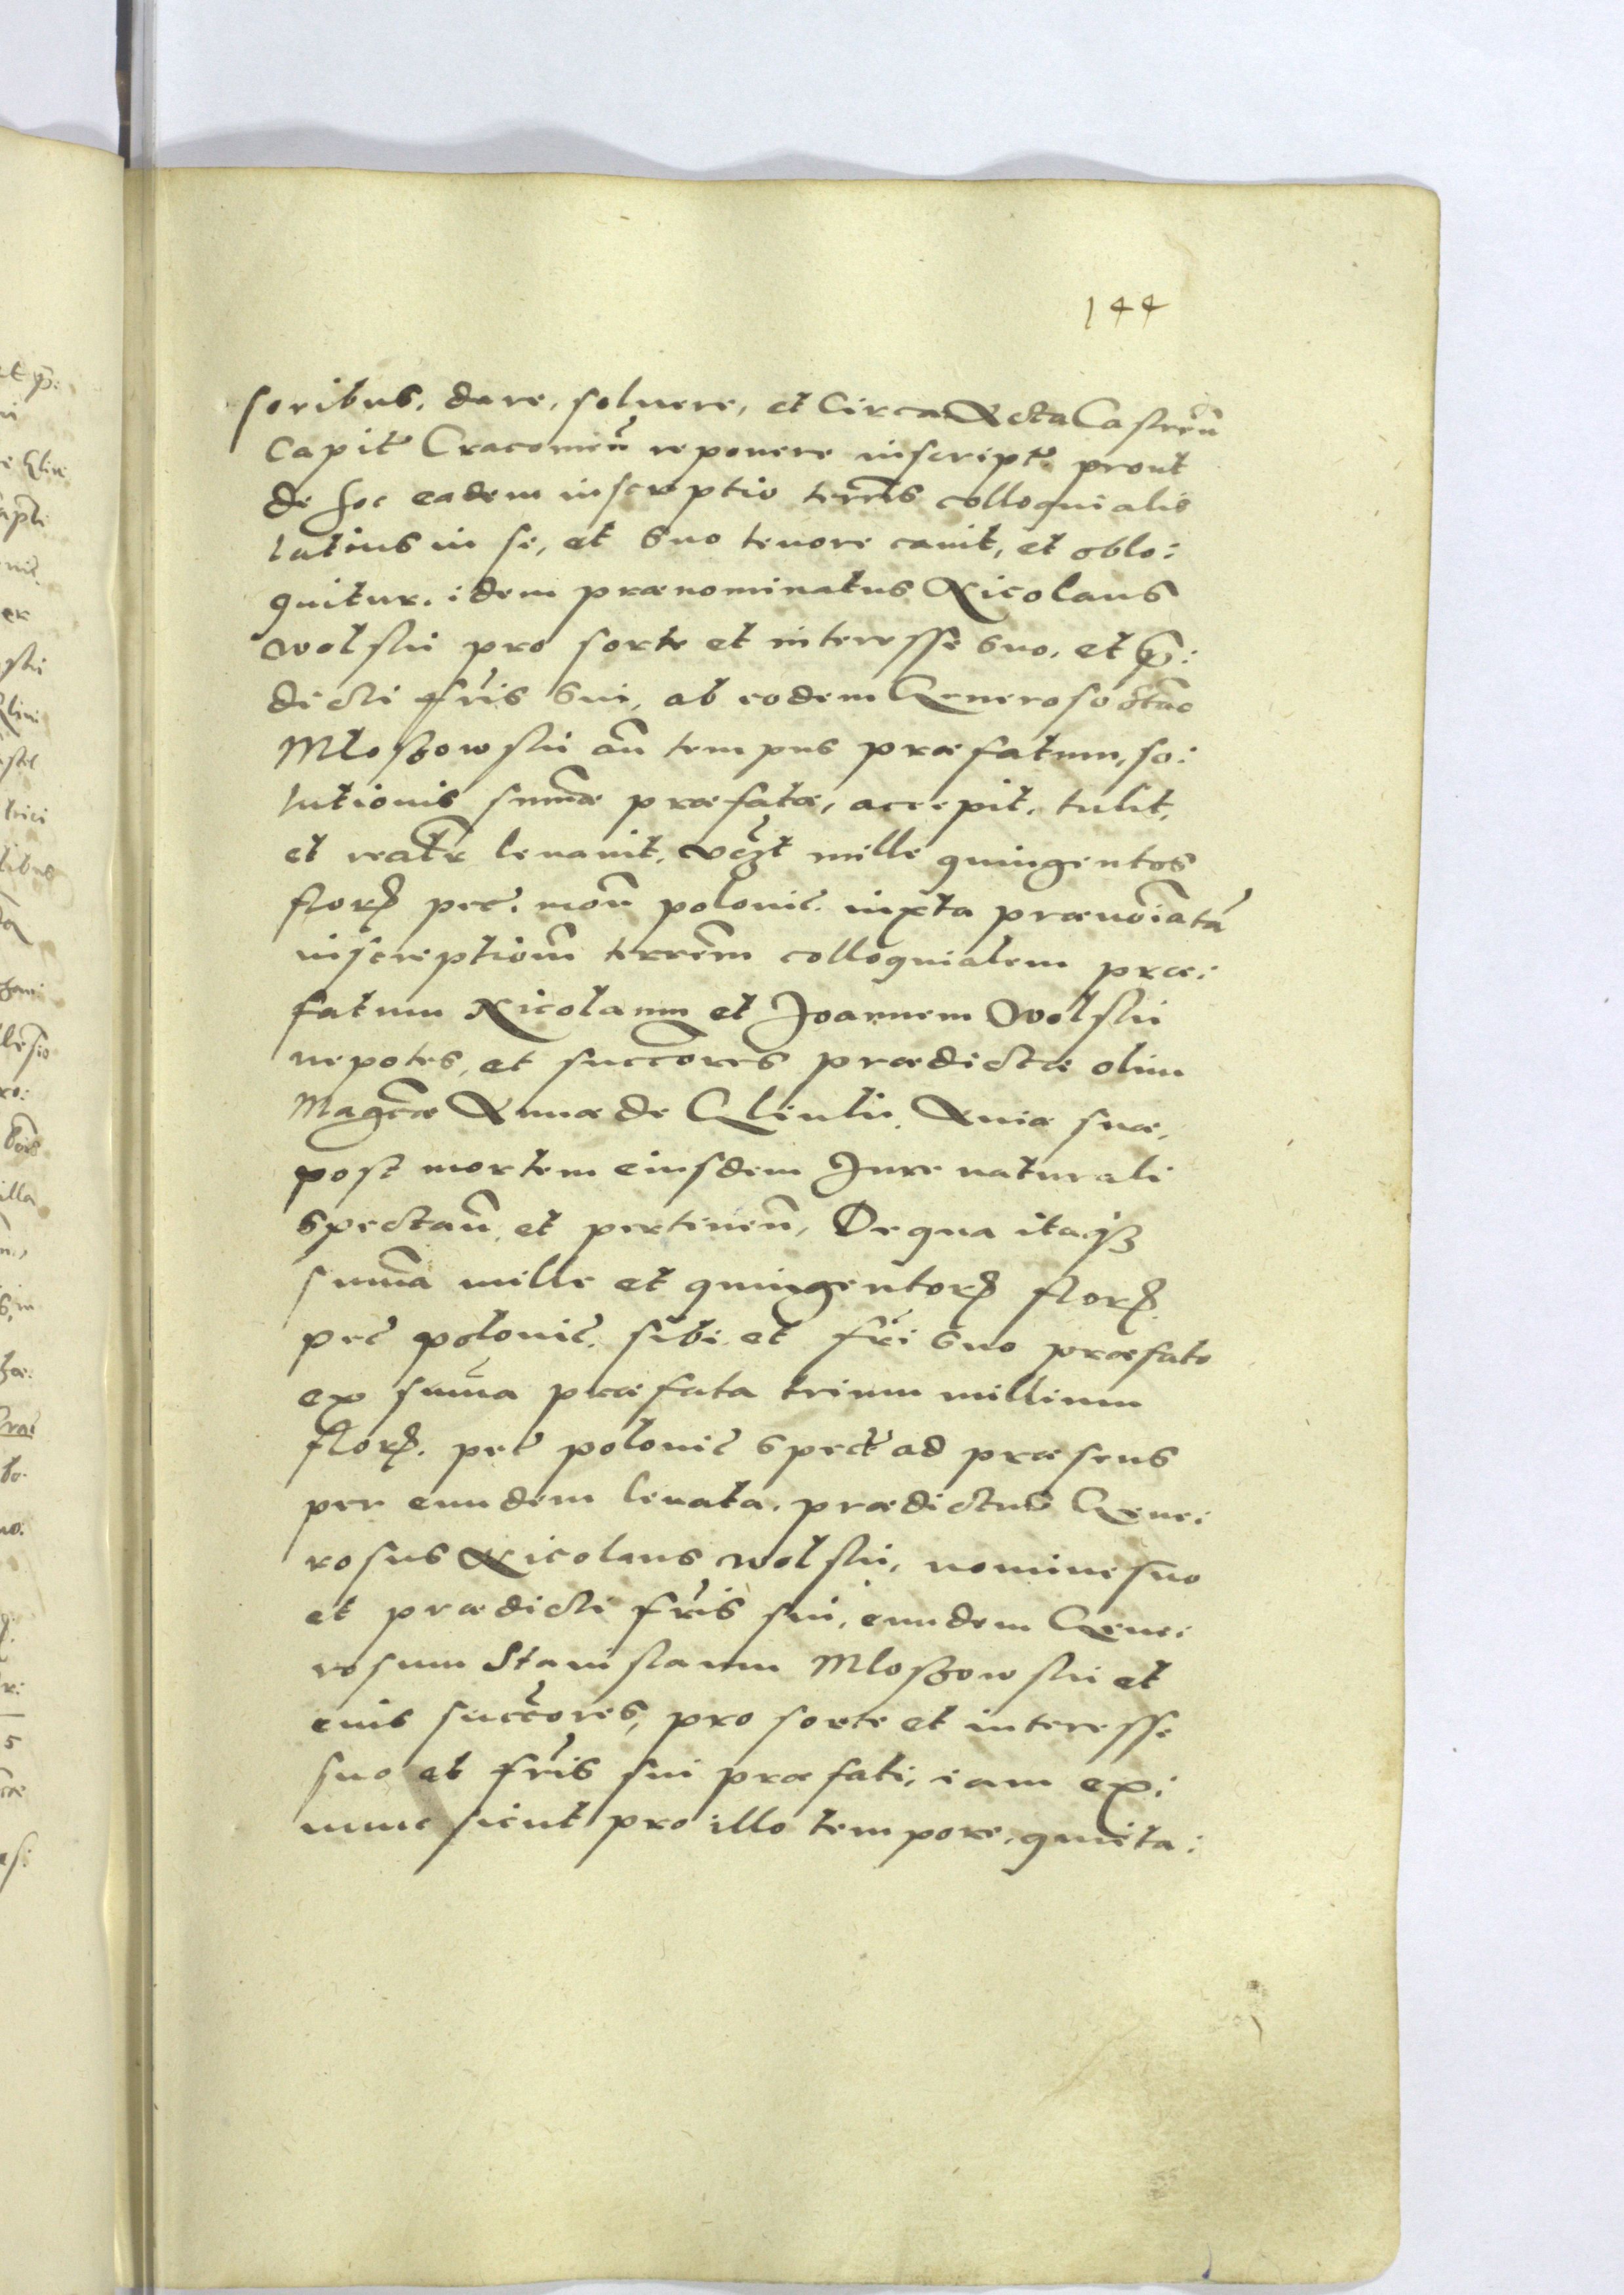 144
soribus, dare, soluere, et Circa Acta Castreñ
Capit̃ Cracouieñ reponere inscript̃ prout
de hoc eadem inscriptio terrr̃is colloquialis
latius in se, et suo tenore canit, et oblo:
quitur. idem prænominatus Nicolaus
Wolskii pro sorte et interesse suo, et p̃:
dicti fris̃ sui, ab eodem Generoso Stãο
Mloszowskii añ tempus præfatum, so:
lutionis summæ præfatæ, accepit, tulit,
et realr̃ leuauit, vz̃t mille quingentos
floꝝ pec̃. moñ polonic̃. iuxta prænoĩatã
inscriptioñm terrẽm colloquialem præ:
fatum Nicolaum et Joannem Wolskii
nepotes, et succõres prædictæ olim
Magc̃æ Annæ de Glinki. Auiæ suæ,
post mortem eiusdem Jure naturali
spectañ, et pertineñ, De qua itaqꝫ
summa mille et quingentoꝝ floꝝ.
pec̃ polonic̃. sibi et fri̇̃ suo præfato
ex summa præfata trium millium
floꝝ. pec̃ polonic̃ spect̃ ad præsens
per eundem leuata. prædictus Gene:
rosus Nicolaus Wolskii, nomine suo
et prædicti fris̃ sui, eundem Gene:
rosum Stanislaum Mloszowskii et
euis succc̃ores, pro sorte et interesse
suo et fris̃ sui præfati, iam ex:
nunc sicut pro illo tempore, quieta: